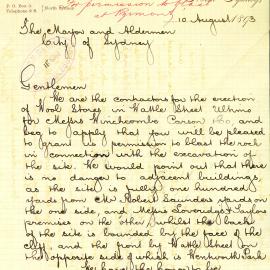 P. O. Box 3
Telephone
North
for permission to
at Pyrmont
10 August 1893
The Mayor and Aldermen
City of Sydney
Gentlemen
We are the contractors for the erection
of Wool Stores in Wattle Street Ultimo
for Messrs Winchcombe Carson & Co, and
beg to apply that you will be pleased
to grant us permission to blast the rock
in connection with the excavation of
the site. We would point out that there
is no danger to adjacent buildings,
as the site is fully one hundred
yards from Mr Robert Saunders yards
on the one side, and Messrs
premises on the other, whilst the back
of the site is bounded by the face of the
cliff, and the front by Wattle Street on
the opposite side of which is Wentworth Park
We have the honor to be